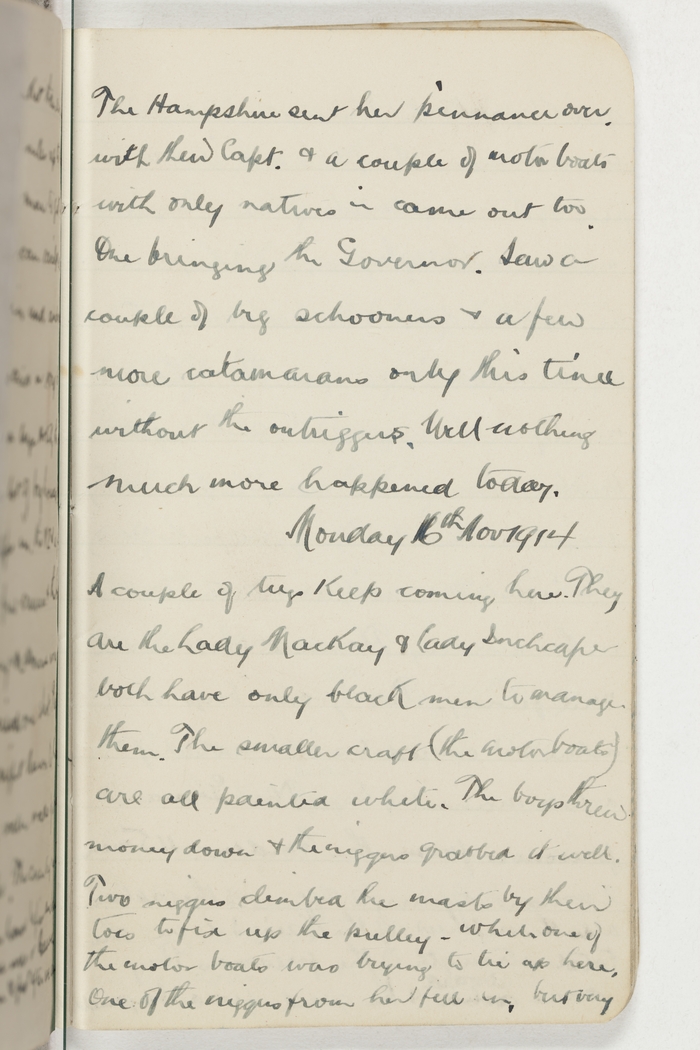 The Hampshire sent her pinnance over,
with their Capt. & a couple of motor boats
with only natives in came out too.
One bringing the Governor. Saw a
couple of big schooners & a few
more catamarans only this time
without the outriggers. Well nothing
much more happened today.
Monday 16th Nov 1914
A couple of tugs keep coming here. They
are the Lady MacKay & Lady Inchcape
both have only black men to manage
them. The smaller craft (the motor boats)
are all painted white. The boys threw
money down & the niggers grabbed it well.
Two niggers climbed the masts by their
toes to fix up the pulley - which one of
the motor boats was trying to tie up here,
One of the niggers from her fell in, but very